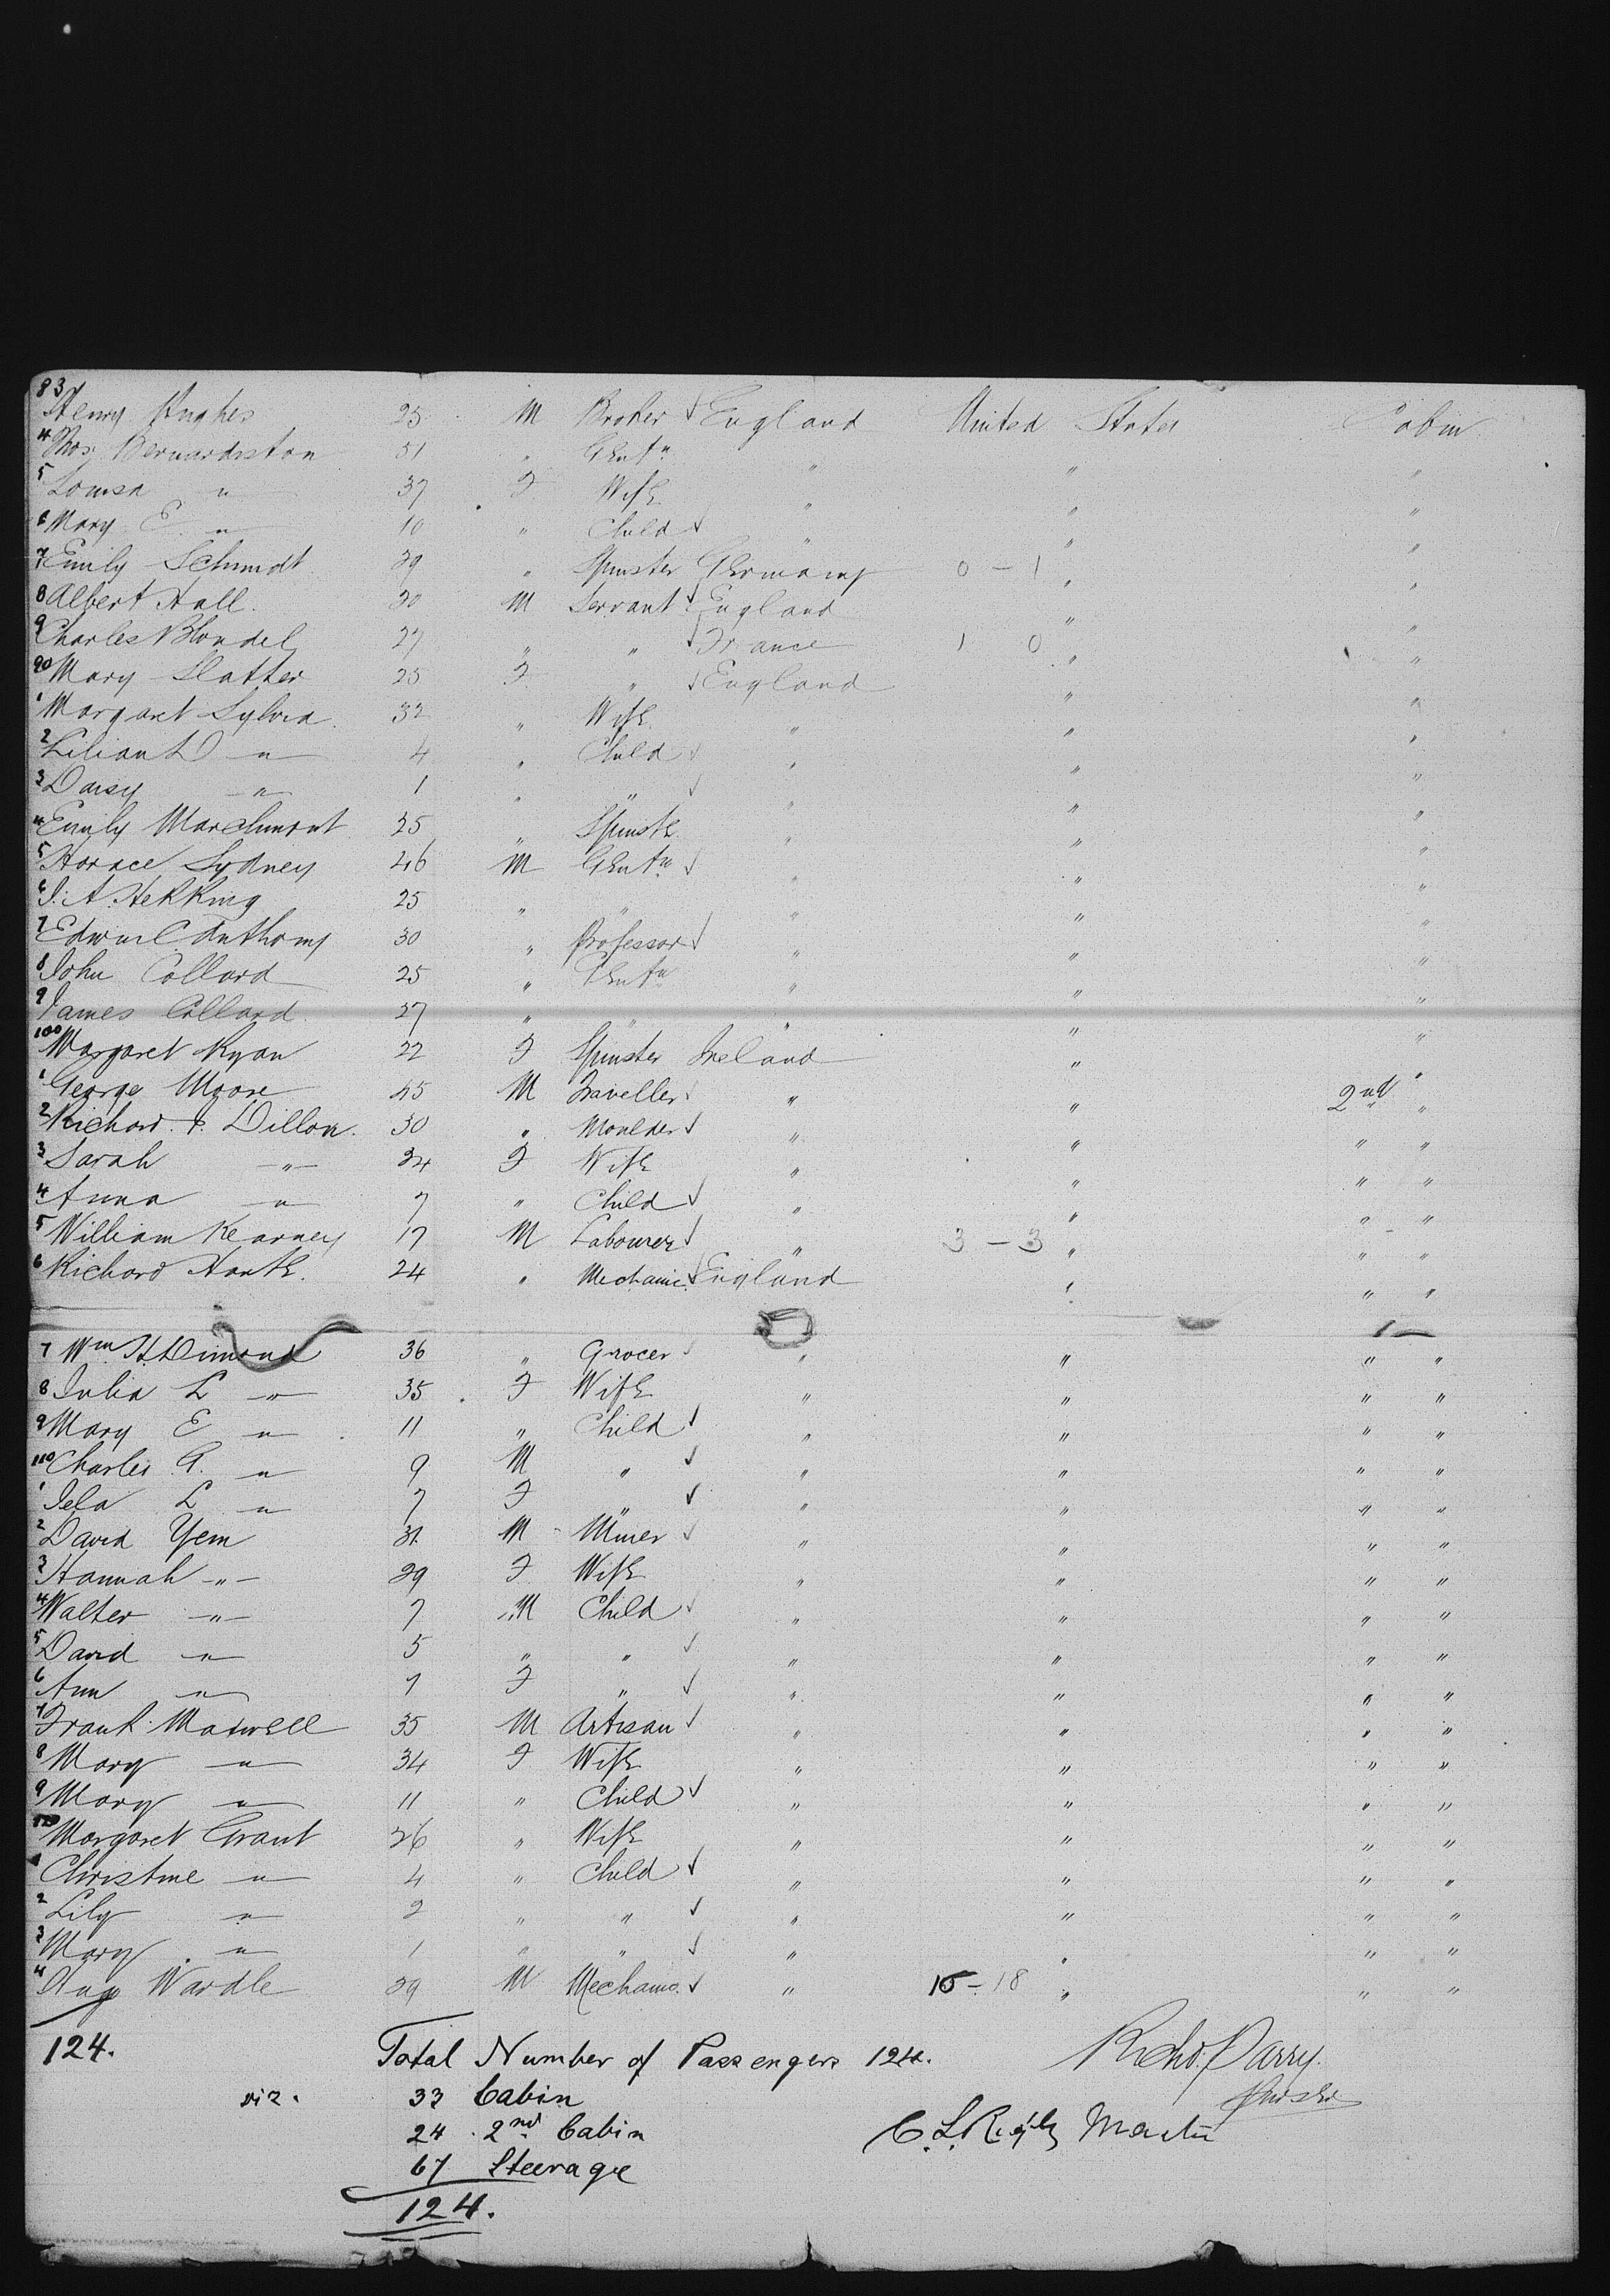 83 Henry Hughes 25 M Broker England United States Cabin
4 Thos. Bernardiston 51 " Gentn " " "
5 Louisa " 37 F Wife " " "
6 Mary E. " 10 " Child " " "
7 Emily Schmidt 29 " Spinster Germany 0 – 1 " "
8 Albert Hall. 30 M Servant England " "
9 Charles Blondel 27 " " France 1 0 " "
90 Mary Slatter 25 F " England " "
1 Margaret Sylvia 32 " Wife " " "
2 Lilian D " 4 " Child " " "
3 Daisy " 1 " " " " "
4 Emily Marchmont 25 " Spinstr " " "
5 Horace Sydney 46 M Gentn " " "
6 J. A. Hekking 25 " " " " "
7 Edwin C Anthony 30 " Professor " " "
8 John Collard 25 " Gentn " " "
9 James Collard 27 " " " " "
100 Margaret Ryan 22 F Spinster Ireland " "
1 George Moore 45 M Traveller " " 2nd "
2 Richard J. Dillon. 30 " Moulder " " " "
3 Sarah " 34 F Wife " " " "
4 Anna " 7 " Child " " " "
5 William Kearney 17 M Labourer " 3 – 3 " " "
6 Richard 24 " Mechanic England " " "
7 Wm H Dimond 36 " Grocer " " " "
8 Julia L " 35 F Wife " " " "
9 Mary E " 11 " Child " " " "
110 Charles G. " 9 M " " " " "
1 L " 7 F " " " " "
2 David Yem 31 M Miner " " " "
3 Hannah " 29 F Wife " " " "
4 Walter " 7 M Child " " " "
5 David " 5 " " " " " "
6 Ann " 1 F " " " " "
7 Frank Maxwell 35 M Artisan " " " "
8 Mary " 34 F Wife " " " "
9 Mary " 11 " Child " " " "
120 Margaret Grant 26 " Wife " " " "
1 Christine " 4 " Child " " " "
2 Lily " 2 " " " " " "
3 Mary " 1 " " " " " "
4 Wardle 29 M Mechanic " 15 – 18 " " "
124. Total Number of Passengers 124. Richd. Parry.
viz. 33 Cabin
24 2nd Cabin C. L.
67 Steerage
124.